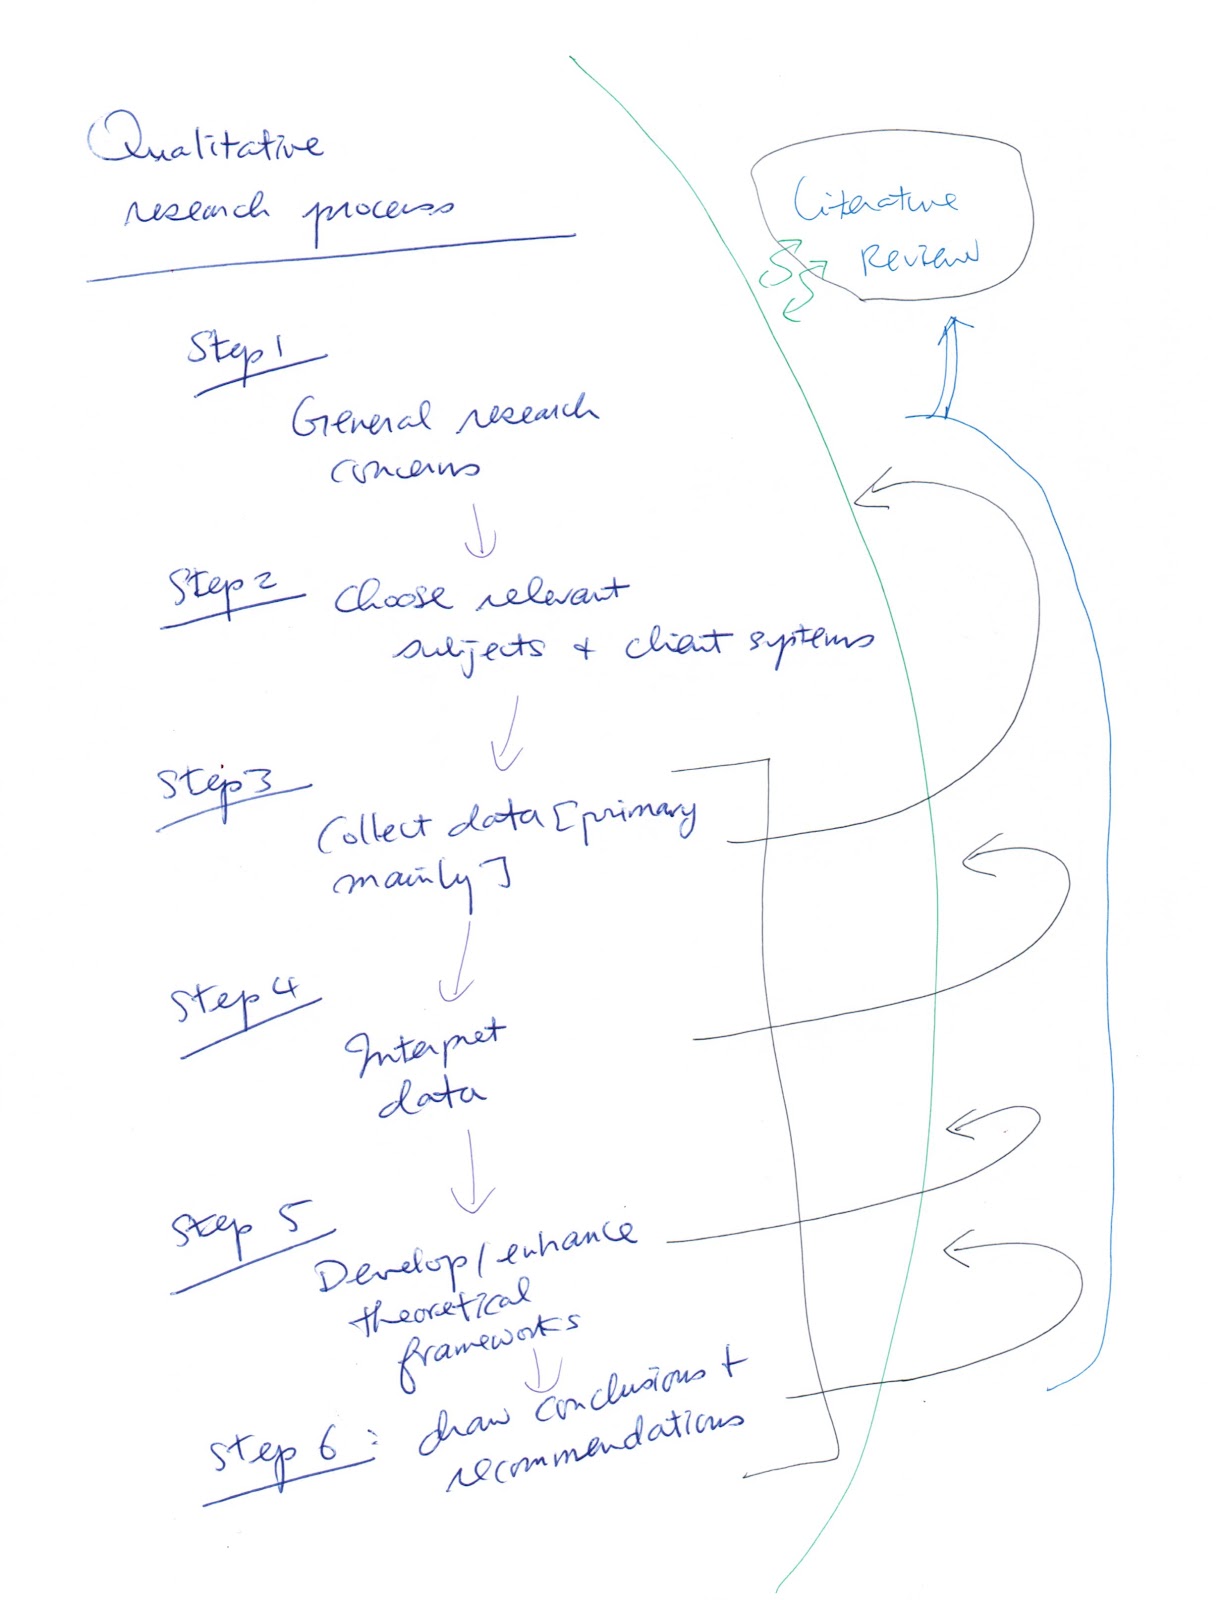 Qualitative
research process
Step 1
General research
concerns
Step 2 Choose relevant
subjects + client systems
Step 3
Collect data [primary
mainly]
Step 4
Interpret
data
Step 5
Develop/enhance
theoretical
frameworks
Step 6: draw conclusions +
recommendations
Literature
Review